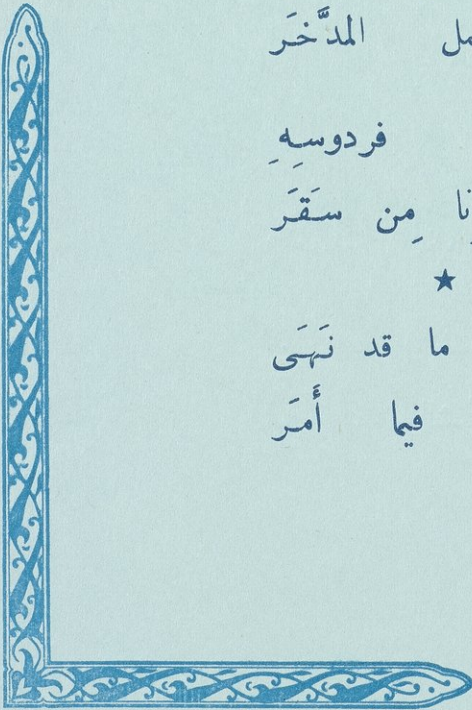 المدَّخَر
فردوسِهِ
مِن سَقَرَ
★
ما قد نَهَى
فيما أَمَر